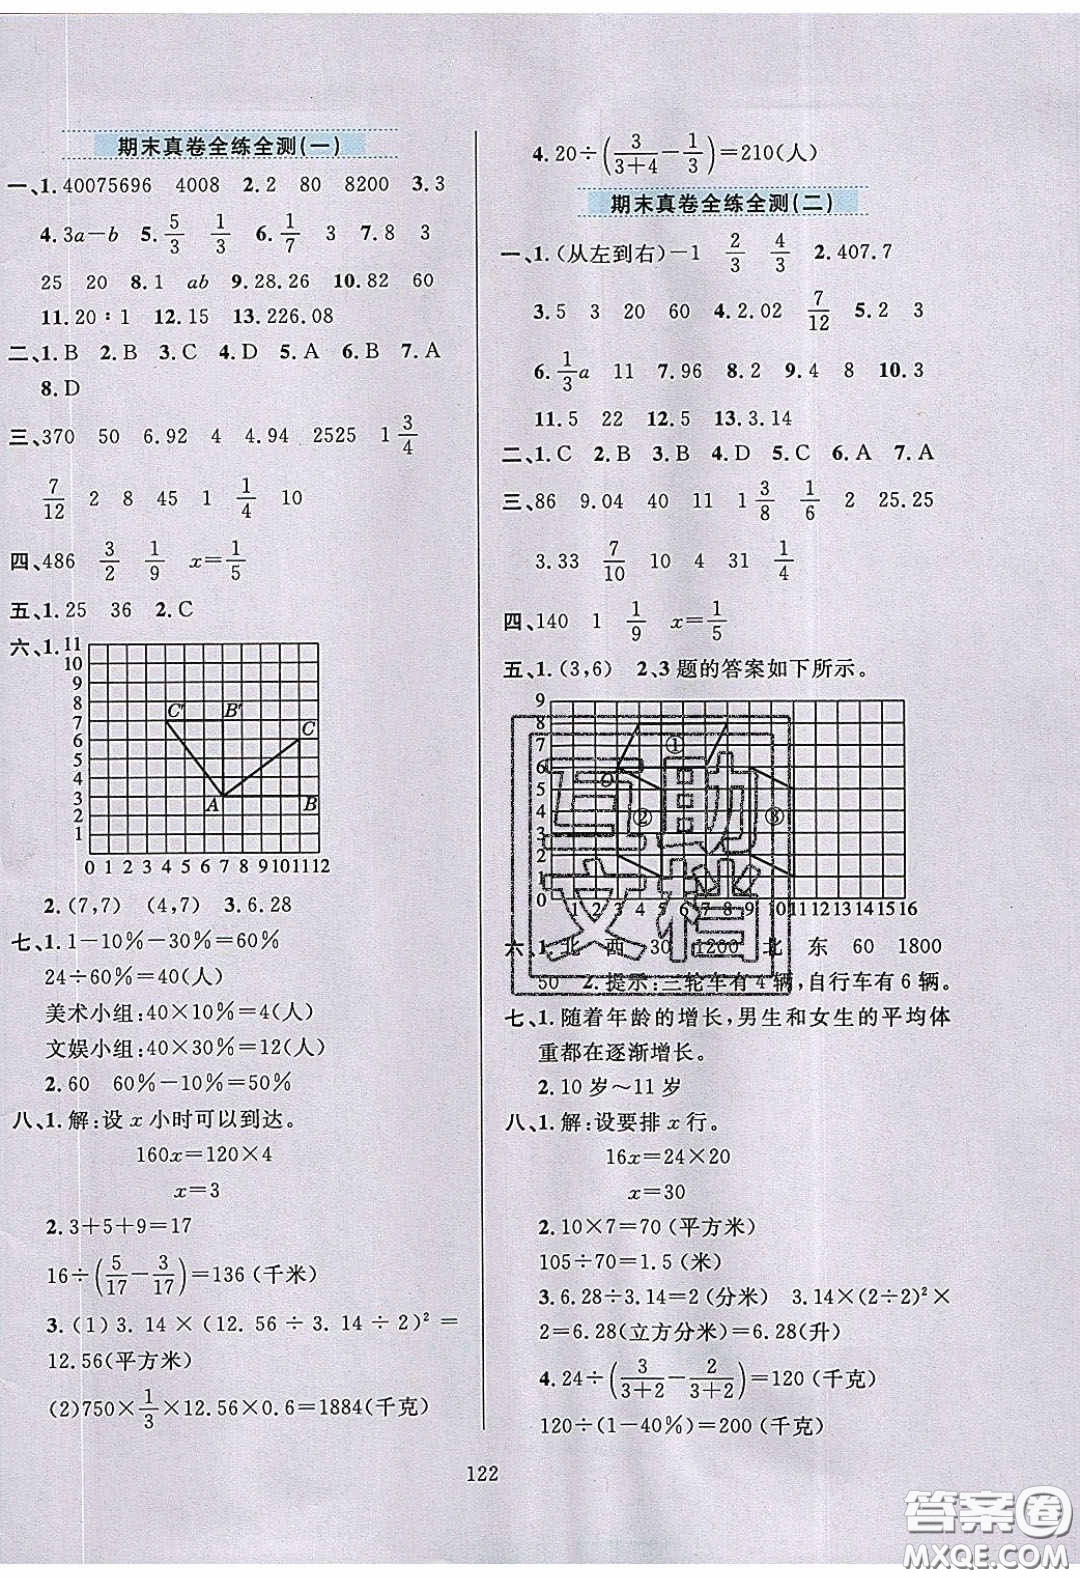 期末真卷全练全测(一)
一、1.40075696 4008 2.2 80 8200 3.3
4.3a－b 5.5/3 1/3 6.1/7 3 7.8 3
25 20 8.1 ab 9.28.26 10.82 60
11.20∶1 12.15 13.226.08
二、1.B 2.B 3.C 4.D 5.A 6.B 7.A
8.D
三、370 50 6.92 4 4.94 2525 1 3/4
7/12 2 8 45 1 1/4 10
四、486 3/2 1/9 x＝1/5
五、1.25 36 2.C
六、1.
11
10
9
8
7
6
5
4
3
2
1
0 1 2 3 4 5 6 7 8 9 10 11 12
C′ B′
C
A B
2.(7,7) (4,7) 3.6.28
七、1.1－10%－30%＝60%
24÷60%＝40(人)
美术小组:40×10%＝4(人)
文娱小组:40×30%＝12(人)
2.60 60%－10%＝50%
八、1.解:设 x 小时可以到达。
160x＝120×4
x＝3
2.3＋5＋9＝17
16÷(5/17－3/17)＝136(千米)
3.(1)3.14×(12.56÷3.14÷2)²＝
12.56(平方米)
(2)750×1/3×12.56×0.6＝1884(千克)
4.20÷(3/(3＋4)－1/3)＝210(人)
期末真卷全练全测(二)
一、1.(从左到右)－1 2/3 4/3 2.407.7
3.5 3 20 60 4.2.02 7/12 5.2 3
6.1/3a 11 7.96 8.2 9.4 8 10.3
11.5 22 12.5 13.3.14
二、1.C 2.B 3.B 4.D 5.C 6.A 7.A
三、86 9.04 40 11 1 3/8 1/6 2 25.25
3.33 7/10 10 4 31 1/4
四、140 1 1/9 x＝1/5
五、1.(3,6) 2、3 题的答案如下所示。
9
8
7
6
5
4
3
2
1
0 1 2 3 4 5 6 7 8 9 10 11 12 13 14 15 16
①
O
② ③
六、1.北 西 30 1200 北 东 60 1800
50 2.提示:三轮车有 4 辆,自行车有 6 辆。
七、1.随着年龄的增长,男生和女生的平均体
重都在逐渐增长。
2.10 岁～11 岁
八、1.解:设要排 x 行。
16x＝24×20
x＝30
2.10×7＝70(平方米)
105÷70＝1.5(米)
3.6.28÷3.14＝2(分米) 3.14×(2÷2)²×
2＝6.28(立方分米)＝6.28(升)
4.24÷(3/(3＋2)－2/(3＋2))＝120(千克)
120÷(1－40%)＝200(千克)
互助
文档
122
答案圈
MXQE.COM